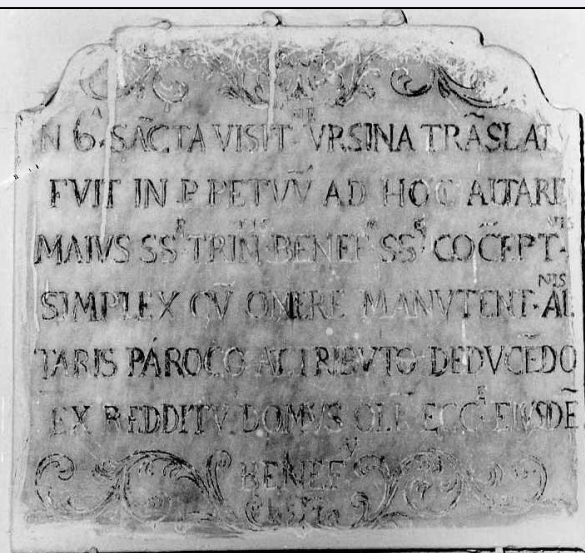 IN 6ᴬ SÃCTA VISIT·ᴺᴱ VRSINA TRÃSLATV
FVIT IN P PETVV̄ AD HOC ALTARE
MAIVS SSᴱ TRIN·ᵀᴵˢ BENEFᴹ SSᴱ COC̃EPT·ᴺᴵˢ
SIMPLEX CV̄ ONERE MANVTENT·ᴺᴵˢ AL
TARIS PÁROCO AC TRIBVTO DEDVCẼDO
EX REDDITV DOMVS ECCᴱ EIVSDẼ
BENEFᵛ